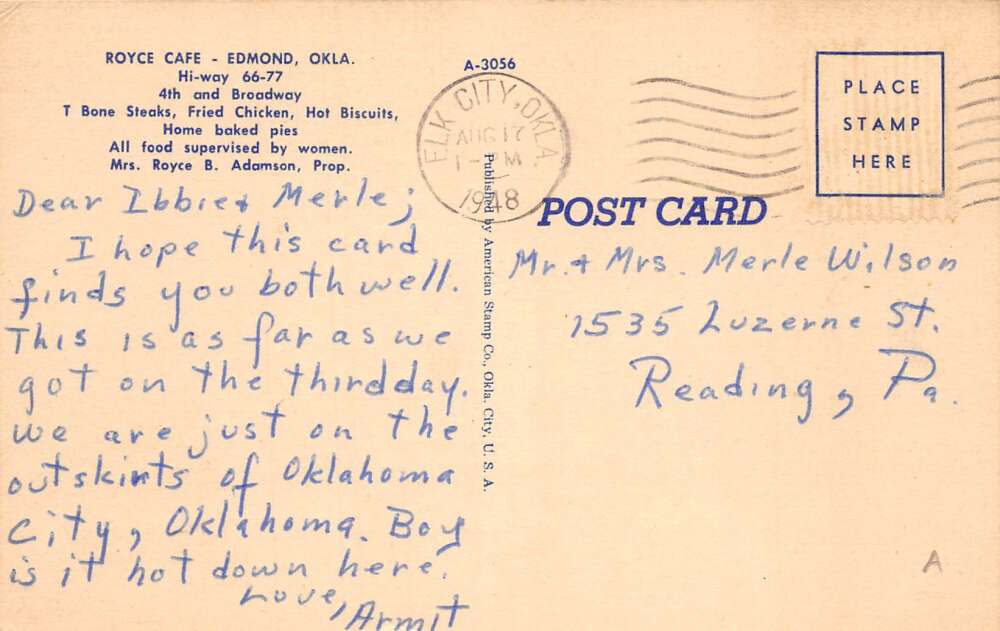 ROYCE CAFE - EDMOND, OKLA.
Hi-way 66-77
4th and Broadway
T Bone Steaks, Fried Chicken, Hot Biscuits,
Home baked pies
All food supervised by women.
Mrs. Royce B. Adamson, Prop.
A-3056
ELK CITY, OKLA.
AUG 17
1948
PLACE
STAMP
HERE
POST CARD
Published by American Stamp Co., Okla. City, U. S. A.
Dear Ibbie & Merle;
I hope this card
finds you both well.
This is as far as we
got on the third day.
We are just on the
outskirts of Oklahoma
City, Oklahoma. Boy
is it hot down here.
Love, Armit
Mr. & Mrs. Merle Wilson
1535 Luzerne St.
Reading, Pa.
A